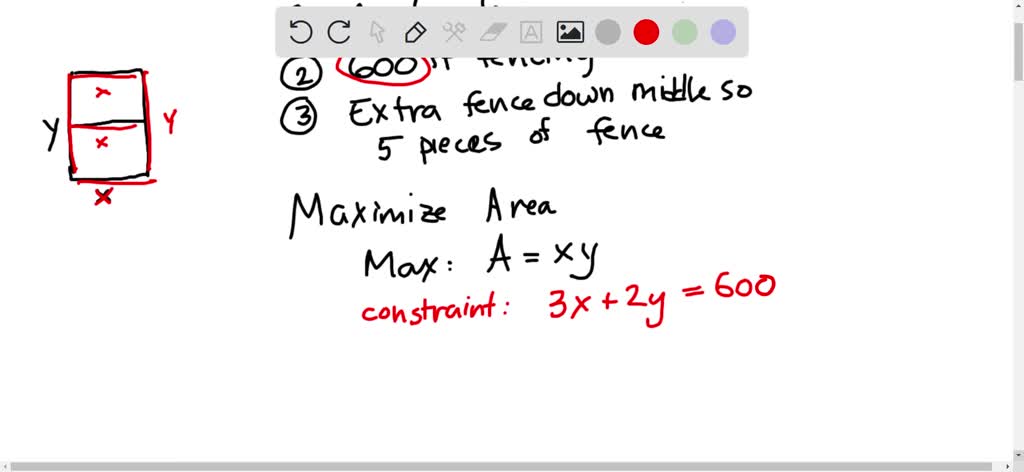 ② 600 ft fencing
③ Extra fence down middle so
5 pieces of fence
x
Y
Y
x
x
Maximize Area
Max: A = xy
constraint: 3x + 2y = 600